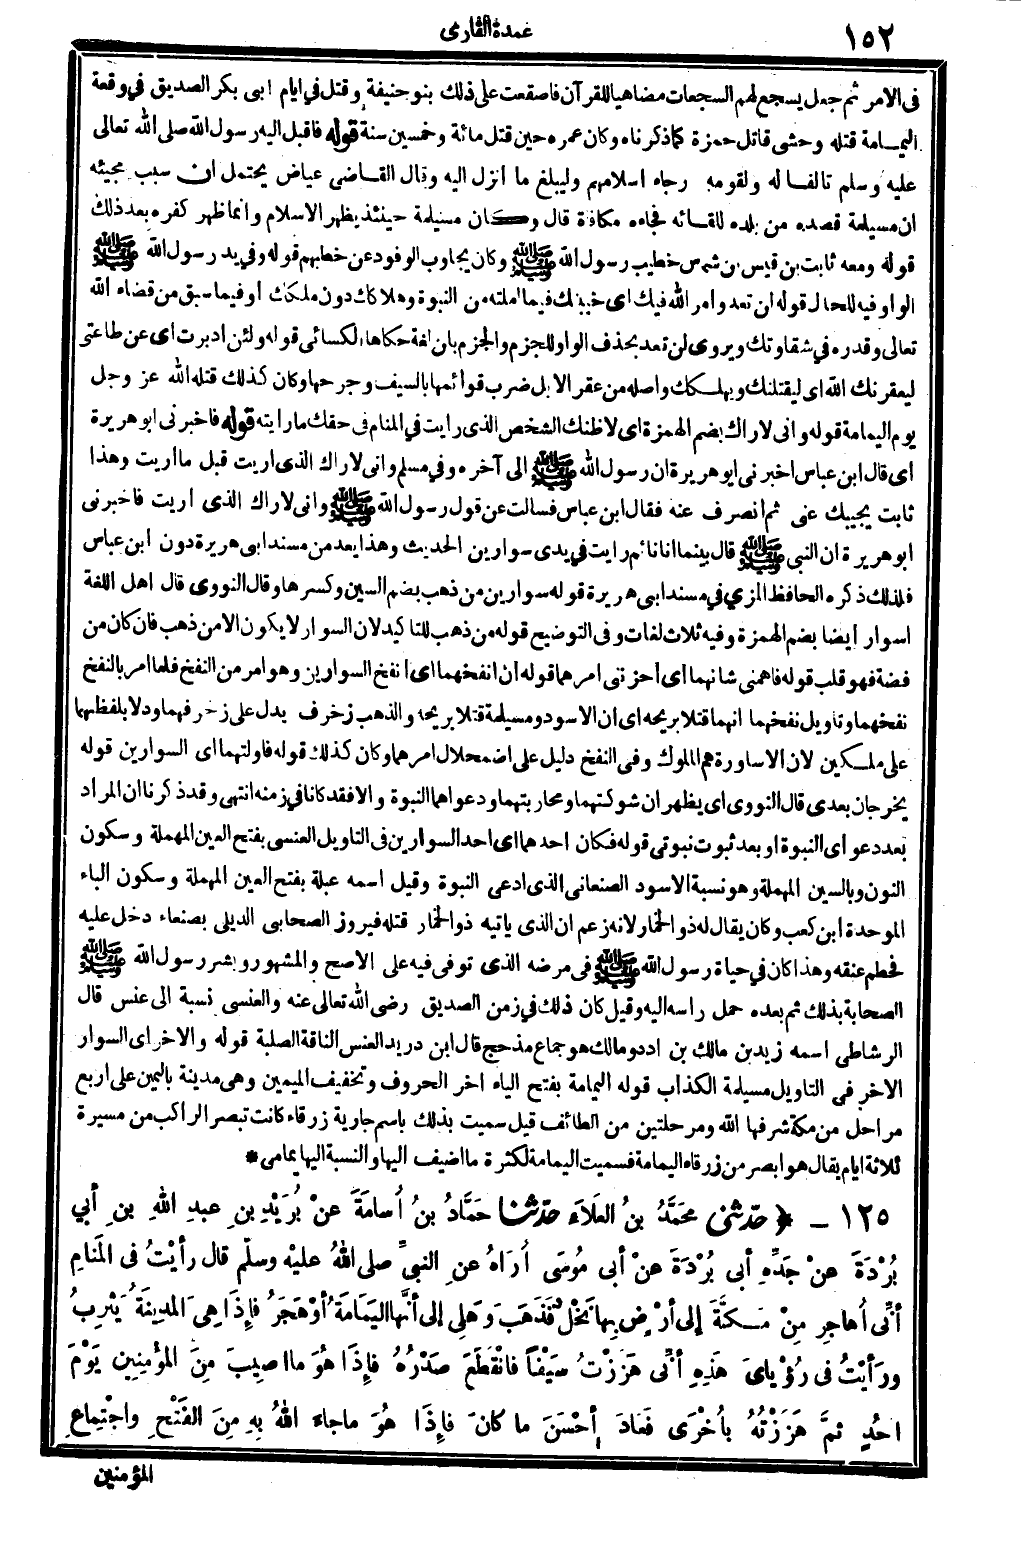 ١٥٢
عمدة القارى
فى الامر ثم جعل يسجع لهم السجعات مضاهيا للقرآن فاصفقت على ذلك بنو حنيفة وقتل في ايام ابى بكر الصديق في وقعة
اليمامة قتله وحشى قاتل حمزة كما ذكرناه وكان عمره حين قتل مائة وخمسين سنة قوله فاقبل اليه رسول الله صلى الله تعالى
عليه وسلم تالفا له ولقومه رجاء اسلامهم وليبلغ ما انزل اليه وقال القاضى عياض يحتمل ان سبب مجيئه
ان مسيلمة قصده من بلده للقائه فجاءه مكافاة قال وكان مسيلمة حينئذ يظهر الاسلام وانما ظهر كفره بعد ذلك
قوله ومعه ثابت بن قيس بن شمس خطيب رسول الله ﷺ وكان يجاوب الوفود عن خطبهم قوله وفي يد رسول الله ﷺ
الواو فيه للحال قوله ان تعدو امر الله فيك اى خيبتك فيما املته من النبوة وهلاكك دون ملكك او فيما سبق من قضاء الله
تعالى وقدره في شقاوتك ويروى لن تعد بحذف الواو للجزم والجزم بلن لغة حكاها الكسائى قوله ولئن ادبرت اى عن طاعتى
ليعقرنك الله اى ليقتلنك ويهلكك واصله من عقر الابل ضرب قوائمها بالسيف وجرحها وكان كذلك قتله الله عز وجل
يوم اليمامة قوله وانى لاراك بضم الهمزة اى لاظنك الشخص الذى رايت في المنام فى حقك ما رايته قوله فاخبرنى ابو هريرة
اى قال ابن عباس اخبرنى ابو هريرة ان رسول الله ﷺ الى آخره وفي مسلم وانى لاراك الذى اريت قبل ما أريت وهذا
ثابت يجيبك عنى ثم انصرف عنه فقال ابن عباس فسالت عن قول رسول الله ﷺ وانى لاراك الذى اريت فاخبرنى
ابو هريرة ان النبى ﷺ قال بينما انا نائم رايت في يدى سوارين الحديث وهذا يعد من مسند ابى هريرة دون ابن عباس
فلذلك ذكره الحافظ المزي في مسند ابى هريرة قوله سوارين من ذهب بضم السين وكسرها وقال النووى قال اهل اللغة
اسوار ايضا بضم الهمزة وفيه ثلاث لغات وفى التوضيح قوله من ذهب للتاكيد لان السوار لا يكون الا من ذهب فان كان من
فضة فهو قلب قوله فاهمنى شانهما اى أحزننى امرهما قوله ان انفخهما اى انفخ السوارين وهو امر من النفخ فلما امر بالنفخ
نفخهما وتاويل نفخهما انهما قتلا بريحه اى ان الاسود ومسيلمة قتلا بريحه والذهب زخرف يدل على زخرفهما ودلا بلفظهما
على ملكين لان الاساورة هم الملوك وفى النفخ دليل على اضمحلال امرهما وكان كذلك قوله فاولتهما اى السوارين قوله
يخرجان بعدى قال النووى اى يظهر ان شوكتهما ومحاربتهما ودعواهما النبوة والا فقد كانا في زمنه انتهى وقد ذكرنا ان المراد
بعد دعواى النبوة او بعد ثبوت نبوتى قوله فكان احدهما اى احد السوارين فى التاويل العنسى بفتح العين المهملة وسكون
النون وبالسين المهملة وهو نسبة الاسود الصنعانى الذى ادعى النبوة وقيل اسمه عبلة بفتح العين المهملة وسكون الباء
الموحدة ابن كعب وكان يقال له ذو الخمار لانه زعم ان الذى ياتيه ذو الخمار قتله فيروز الصحابى الديلى بصنعاء دخل عليه
فحطم عنقه وهذا كان في حياة رسول الله ﷺ فى مرضه الذى توفى فيه على الاصح والمشهور وبشر رسول الله ﷺ
الصحابة بذلك ثم بعده حمل راسه اليه وقيل كان ذلك في زمن الصديق رضى الله تعالى عنه والعنسى نسبة الى عنس قال
الرشاطى اسمه زيد بن مالك بن ادد ومالك هو جماع مذحج قال ابن دريد العنس الناقة الصلبة قوله والاخر اى السوار
الاخر فى التاويل مسيلمة الكذاب قوله اليمامة بفتح الياء اخر الحروف وتخفيف الميمين وهى مدينة باليمن على اربع
مراحل من مكة شرفها الله ومرحلتين من الطائف قيل سميت بذلك باسم جارية زرقاء كانت تبصر الراكب من مسيرة
ثلاثة ايام يقال هو ابصر من زرقاء اليمامة فسميت اليمامة لكثرة ما اضيف اليها والنسبة اليها يمامى *
١٢٥ - ﴿ حدّثنى محَمَّدُ بنُ العَلَاءِ حدّثنا حَمَّادُ بنُ أُسامَةَ عَنْ بُرَيْدِ بنِ عبدِ اللهِ بنِ أبي
بُرْدَةَ عنْ جَدِّهِ أبى بُرْدَةَ عنْ أبى مُوسَى أُرَاهُ عنِ النبىِّ صلى اللهُ عليْه وسلّم قال رأيْتُ فى المَنامِ
أنِّى أُهاجِر مِنْ مَكَّةَ إلى أرْضٍ بِها نَخْلٌ فَذَهَبَ وَهلِى إلى أنَّها اليَمَامَةُ أوْ هَجَرُ فإِذَا هِىَ المَدِينَةُ يَثْرِبُ
ورَأيْتُ فى رُؤْياىَ هَذِهِ أنِّى هَزَزْتُ سَيْفًا فانْقَطَعَ صَدْرُهُ فإِذَا هُوَ ما اصِيبَ مِنَ المُؤْمِنِينَ يَوْمَ
احُدٍ ثمَّ هَزَزْتُهُ بأُخْرَى فَعَادَ أحْسَنَ ما كانَ فإِذَا هُوَ ماجاءَ اللهُ بِهِ مِنَ الفَتْحِ واجْتِماعِ
المؤمنين